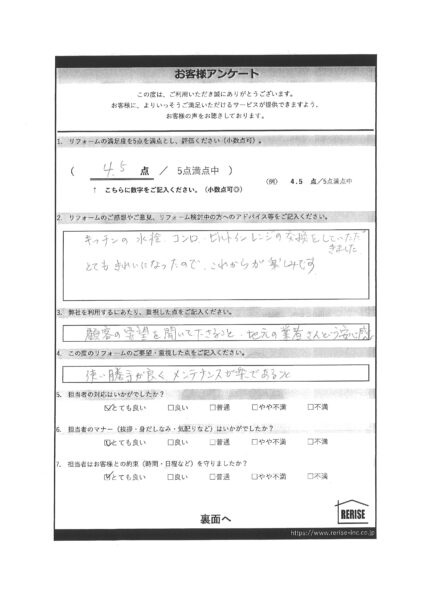 お客様アンケート
この度は、ご利用いただき誠にありがとうございます。
お客様に、よりいっそうご満足いただけるサービスが提供できますよう、
お客様の声をお聴きしております。
1. リフォームの満足度を5点を満点とし、評価ください(小数点可)。
( 4.5 点 / 5点満点中 )
(例) 4.5 点/5点満点中
↑ こちらに数字をご記入ください。(小数点可◎)
2. リフォームのご感想やご意見、リフォーム検討中の方へのアドバイス等をご記入ください。
キッチンの水栓、コンロ、ビルトインレンジの交換をしていただきました
とてもきれいになったので、これからが楽しみです
3. 弊社を利用するにあたり、重視した点をご記入ください。
顧客の要望を聞いて下さること・地元の業者さんという安心感
4. この度のリフォームのご要望・重視した点をご記入ください。
使い勝手が良く メンテナンスが楽であること
5. 担当者の対応はいかがでしたか?
☑とても良い □良い □普通 □やや不満 □不満
6. 担当者のマナー(挨拶・身だしなみ・気配りなど)はいかがでしたか?
☑とても良い □良い □普通 □やや不満 □不満
7. 担当者はお客様との約束(時間・日程など)を守りましたか?
☑とても良い □良い □普通 □やや不満 □不満
裏面へ
RERISE
https://www.rerise-inc.co.jp